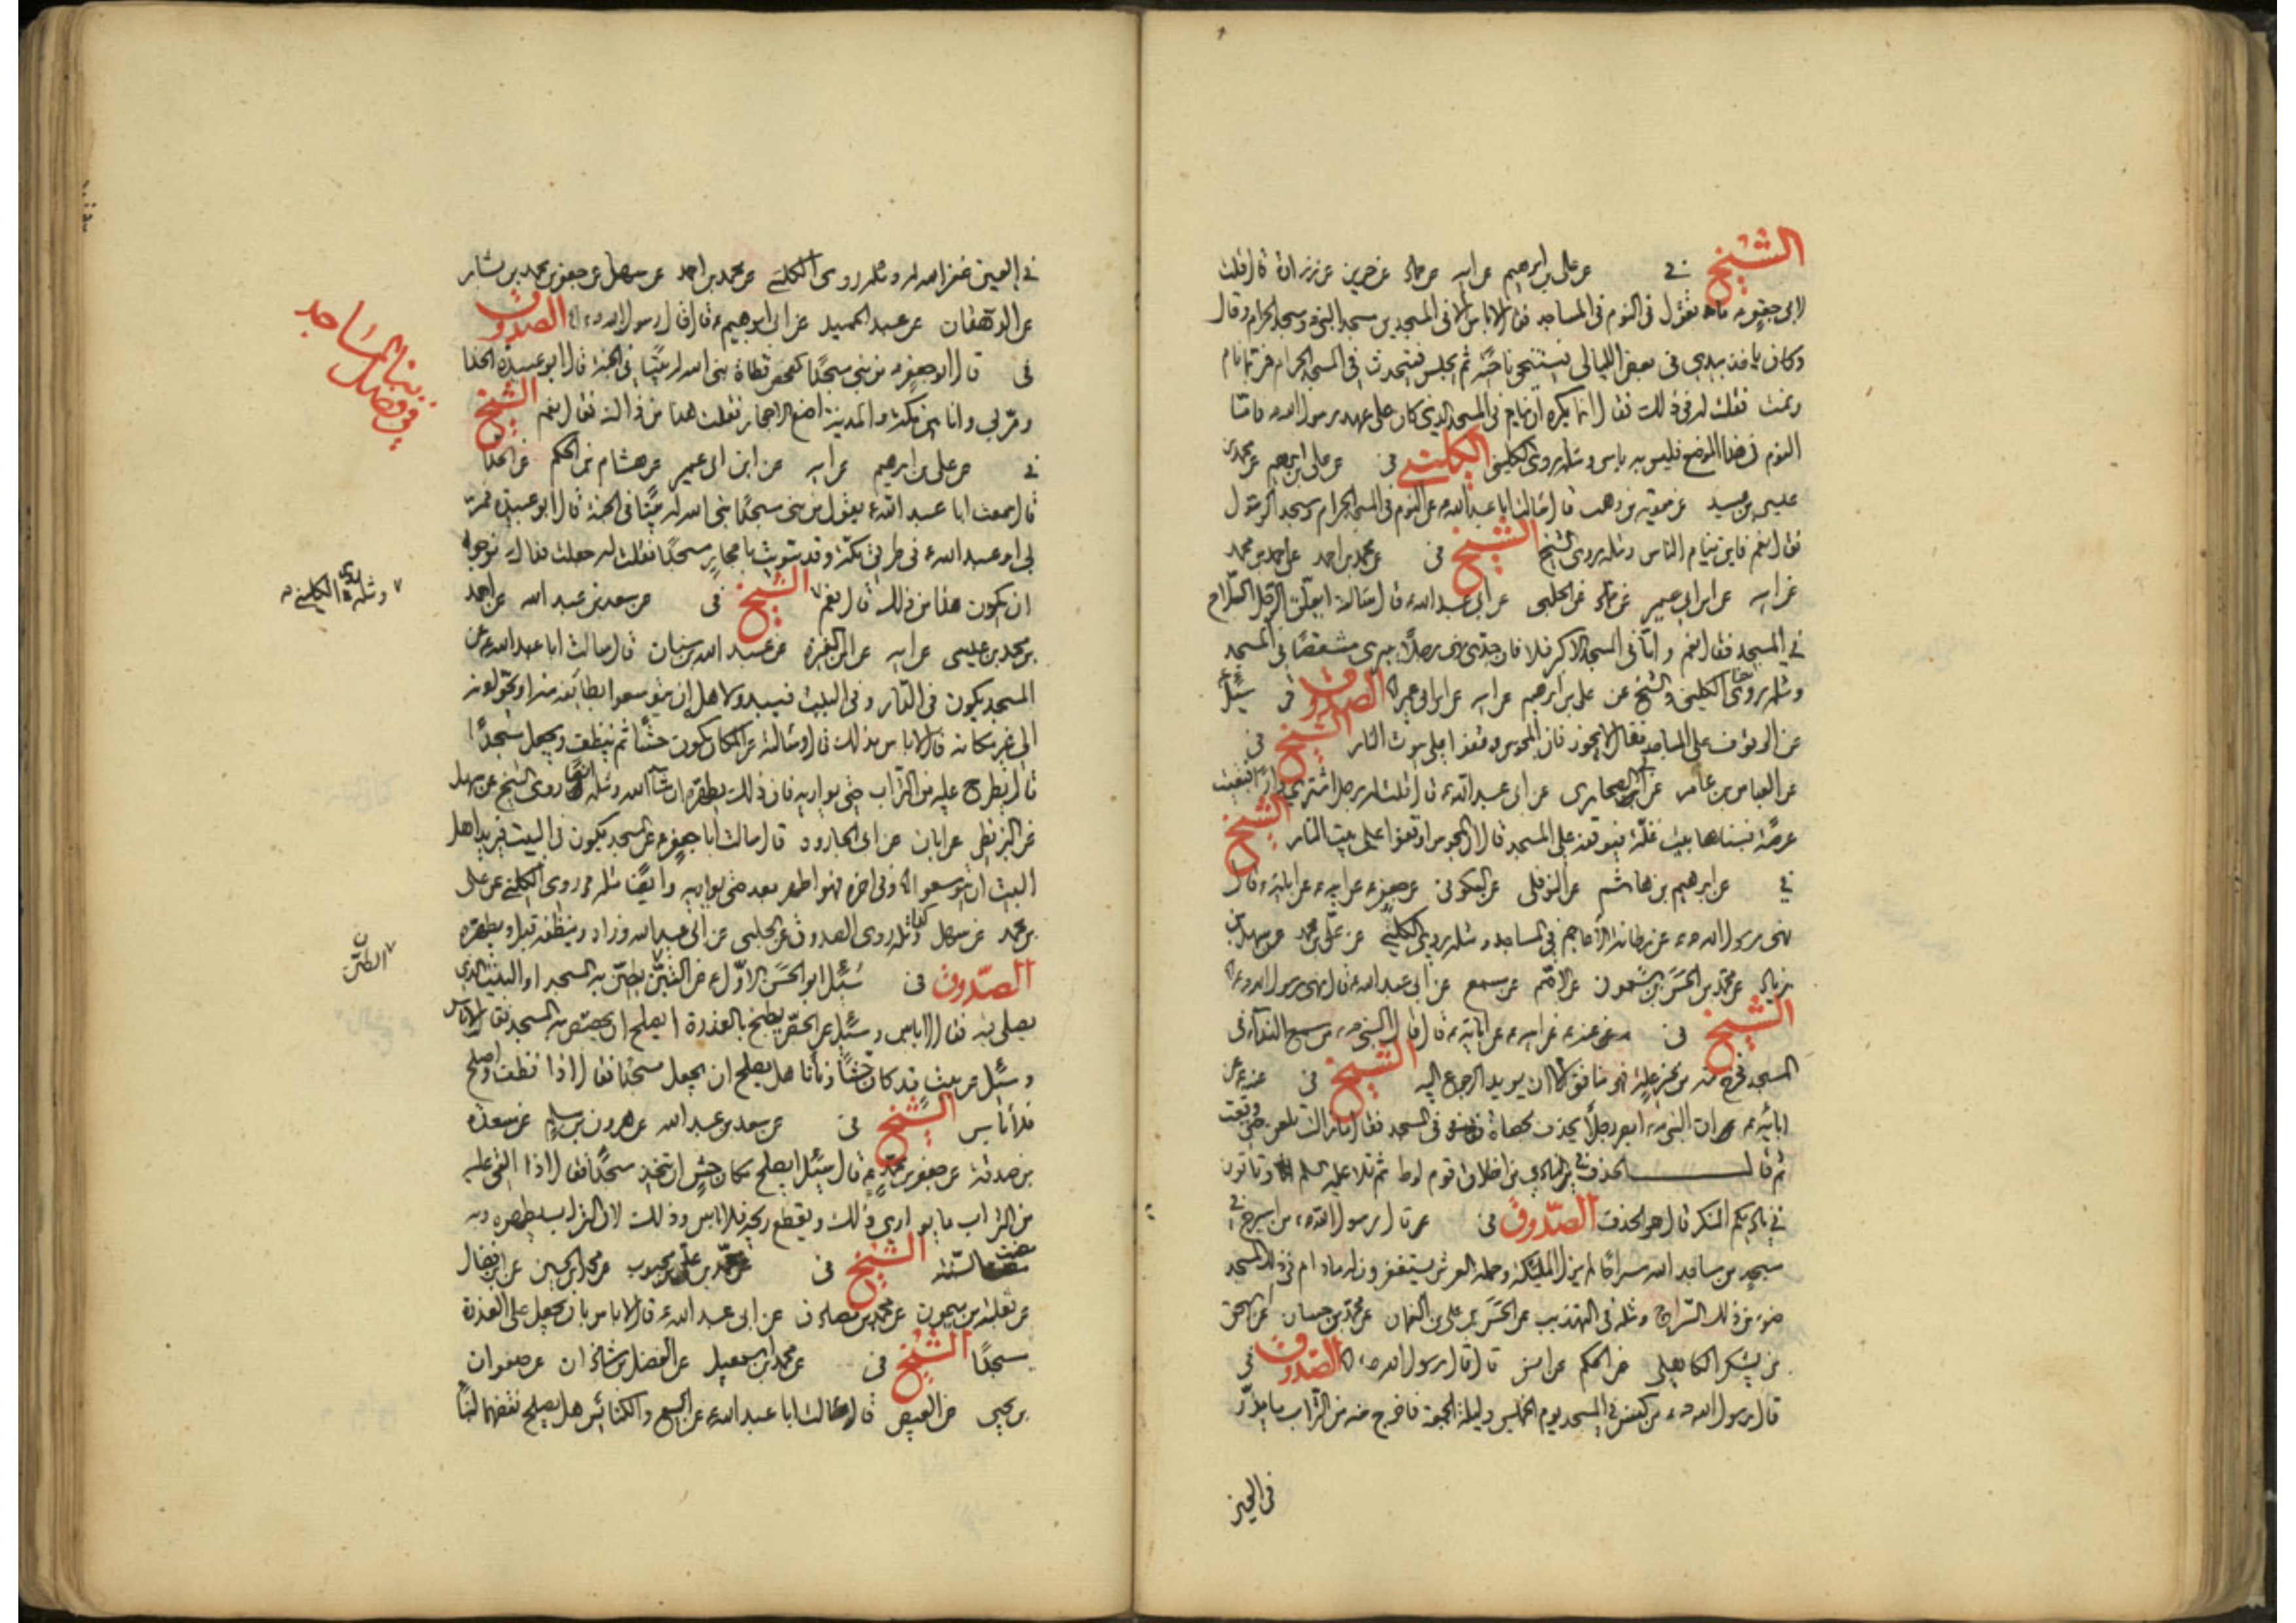 الشيخ في عن علي بن ابرهيم عن ابيه عن حماد عن حريز عن زرارة قال قلت
لابي جعفر ما تقول في النوم في المساجد فقال لا باس الا في المسجدين مسجد النبي ومسجد الحرام وقال
وكان ياخذ بيدي في بعض الليالي فيتنحى ناحية ثم يجلس فيتحدث في المسجد الحرام فربما نام
ونمت فقلت له في ذلك فقال انما يكره ان ينام في المسجد الذي كان على عهد رسول الله فاما
النوم في هذا الموضع فليس به باس ومثله روى الكليني الكليني في عن علي بن ابرهيم عن محمد بن
عيسى عن معوية بن وهب قال سالت ابا عبد الله عن النوم في المسجد الحرام ومسجد الرسول
فقال نعم فاين ينام الناس ومثله روى الشيخ الشيخ في عن محمد بن احمد عن احمد بن محمد
عن ابيه عن ابن ابي عمير عن حماد عن الحلبي عن ابي عبد الله قال سالته ايعلق الرجل السلاح
في المسجد فقال نعم واما في المسجد الاكبر فلا فان جدي نهى رجلا يبري مشقصا في المسجد
ومثله روى الكليني والشيخ عن علي بن ابرهيم عن ابيه عن ابن ابي عمير الصدوق في سئل
عن الوقوف على المساجد فقال لا يجوز فان المجوس وقفوا على بيوت النار الشيخ في
عن العباس بن عامر عن ابي الصحاري عن ابي عبد الله قال قلت له رجل اشترى دارا فبقيت
عرصة فبناها بيت غلة فيوقفه على المسجد قال ان المجوس اوقفوا على بيت النار الشيخ
في عن ابرهيم بن هاشم عن النوفلي عن السكوني عن جعفر عن ابيه عن ابائه قال
نهى رسول الله عن رطانة الاعاجم في المساجد ومثله روى الكليني عن علي بن محمد عن سهل بن
زياد عن محمد بن الحسن بن شمون عن الاصم عن مسمع عن ابي عبد الله قال نهى رسول الله
الشيخ في عن ابيه عن ابائه قال قال النبي من سمع النداء في
المسجد فخرج منه من غير علة فهو منافق الا ان يريد الرجوع اليه الشيخ في عنه عن
ابائه ان النبي ابصر رجلا يخذف بحصاة في المسجد فقال ما زالت تلعن حتى وقعت
ثم قال الخذف في النادي من اخلاق قوم لوط ثم تلا عليه السلم وتاتون
في ناديكم المنكر قال هو الخذف الصدوق في قال رسول الله من اسرج في
مسجد من مساجد الله سراجا لم يزل الملئكة وحملة العرش يستغفرون له ما دام في ذلك المسجد
ضوء من ذلك السراج ومثله في التهذيب عن الحسن بن علي بن النعمان عن محمد بن حسان عن اسحق
بن يشكر الكاهلي عن الحكم عن انس قال قال رسول الله الصدوق في
قال رسول الله من كنس المسجد يوم الخميس وليلة الجمعة فاخرج منه من التراب ما يذر
في العين
في العين غفر الله له ومثله روى الكليني عن محمد بن احمد عن سهل عن جعفر بن محمد بن بشار
عن الدهقان عن عبد الحميد عن ابي ابرهيم قال قال رسول الله الصدوق
في قال ابو جعفر من بنى مسجدا كمفحص قطاة بنى الله له بيتا في الجنة قال ابو عبيدة الحذا
ومر بي وانا بين مكة والمدينة اضع الاحجار فقلت هذا من ذاك فقال نعم الشيخ
في عن علي بن ابرهيم عن ابيه عن ابن ابي عمير عن هشام بن الحكم عن الحذا
قال سمعت ابا عبد الله يقول من بنى مسجدا بنى الله له بيتا في الجنة قال ابو عبيدة فمر
بي ابو عبد الله في طريق مكة وقد سويت باحجار مسجدا فقلت له جعلت فداك نرجو
ان يكون هذا من ذلك قال نعم الشيخ في عن سعد بن عبد الله عن احمد
بن محمد بن عيسى عن ابيه عن ابن المغيرة عن عبد الله بن سنان قال سالت ابا عبد الله عن
المسجد يكون في الدار وفي البيت فيبدو لاهله ان يتوسعوا بطائفة منه او يحولوه
الى غير مكانه قال لا باس بذلك قال وسالته عن المكان يكون حشا ثم ينظف ويجعل مسجدا
قال يطرح عليه من التراب حتى يواريه فان ذلك يطهره ان شاء الله ومثله روى الشيخ عن سهل
عن البزنطي عن ابان عن ابي الجارود قال سالت ابا جعفر عن المسجد يكون في البيت فيريد اهل
البيت ان يتوسعوا وفي اخره فهو اطهر بعد حتى يواريه وايضا مثله روى الكليني عن علي
بن محمد عن سهل ومثله روى الصدوق عن الحلبي عن ابي عبد الله وزاد وينظفه قبل ويطهره
الصدوق في سئل ابو الحسن الاول عن الطين يطين به المسجد او البيت الذي
يصلى فيه فقال لا باس وسئل عن الجص يطبخ بالعذرة ايصلح ان يجصص به المسجد فقال لا باس
وسئل عن بيت قد كان حشا زمانا هل يصلح ان يجعل مسجدا فقال اذا نظف واصلح
فلا باس الشيخ في عن سعد بن عبد الله عن هرون بن مسلم عن مسعدة
بن صدقة عن جعفر بن محمد قال سئل ايصلح مكان حش ان يتخذ مسجدا فقال اذا القي عليه
من التراب ما يواري ذلك ويقطع ريحه فلا باس وذلك لان التراب يطهره وبه
مضت السنة الشيخ في عن محمد بن علي بن محبوب عن محمد بن الحسين عن ابن فضال
عن ثعلبة بن ميمون عن محمد بن مصادف عن ابي عبد الله قال لا باس بان يجعل على العذرة
مسجدا الشيخ في عن محمد بن اسمعيل عن الفضل بن شاذان عن صفوان
بن يحيى عن العيص قال سالت ابا عبد الله عن البيع والكنائس هل يصلح نقضهما لبناء
بناء المساجد
في فضل
ومثله روى الكليني
الطين